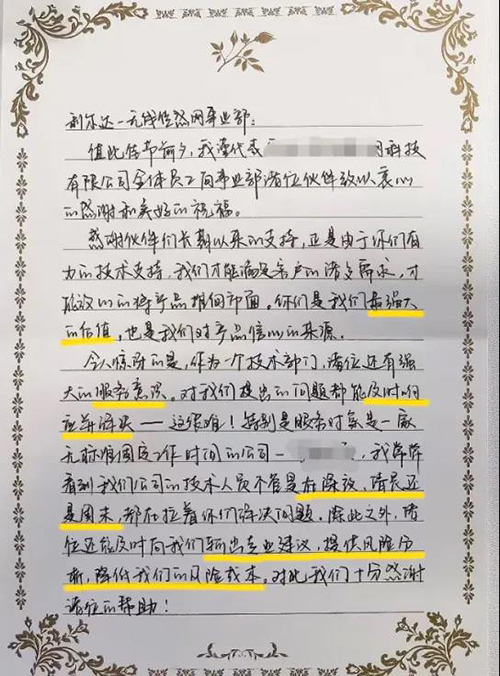 利尔达一无线传感网事业部:
值此佳节前夕,我谨代表 网科技
有限公司全体员工向事业部诸位伙伴致以衷心
的感谢和美好的祝福。
感谢伙伴们长期以来的支持,正是由于你们有
力的技术支持,我们才能满足客户的诸多需求,才
能放心的将产品推向市面。你们是我们最强大
的后盾,也是我们对产品信心的来源。
令人惊讶的是,作为一个技术部门,诸位还有强
大的服务意识。对我们提出的问题都能及时响
应并解决——这很难!特别是服务对象是一家
无标准固定工作时间的公司— ,我常常
看到我们公司的技术人员不管是在深夜,清晨还
是周末,都在拉着你们解决问题。除此之外,诸
位还能及时向我们输出专业建议,提供风险分
析,降低我们的风险成本。对此我们十分感谢
诸位的帮助!